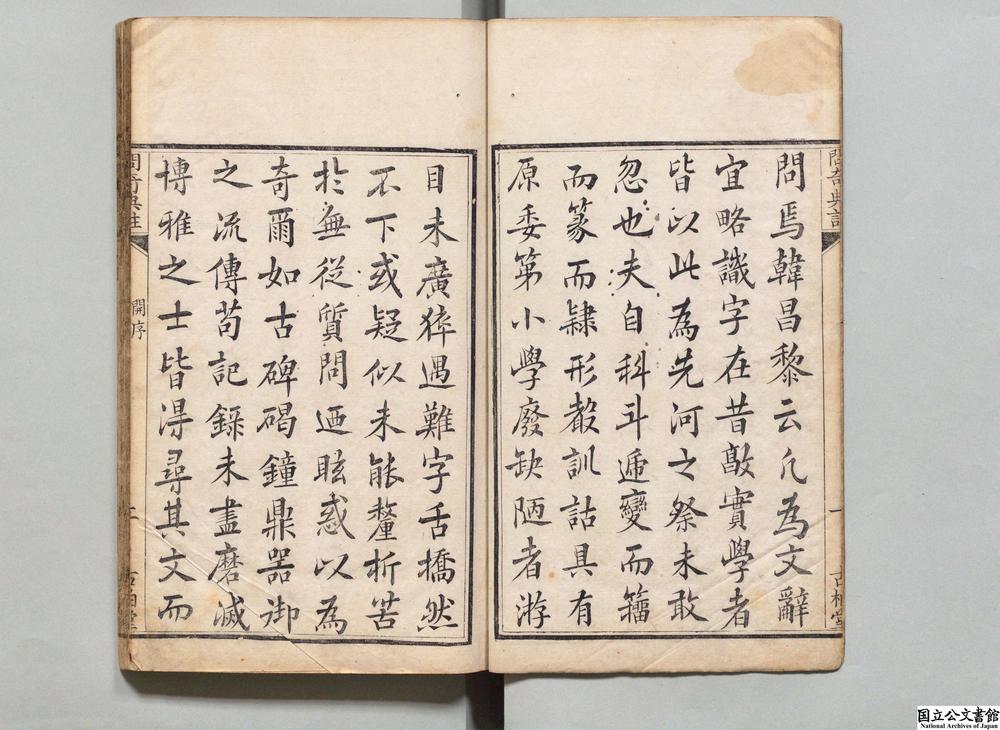 問焉韓昌黎云凡為文辭
宜略識字在昔敦實學者
皆以此為先河之祭未敢
忽也夫自科斗遞變而籒
而篆而隸形聲訓詁具有
原委第小學廢缺陋者游
目未廣猝遇難字舌撟然
不下或疑似未能釐析苦
於無從質問迺眩惑以為
奇爾如古碑碣鐘鼎器御
之流傳苟記錄未盡磨滅
博雅之士皆得尋其文而
問奇典註
開序
二
國立公文書館
National Archives of Japan